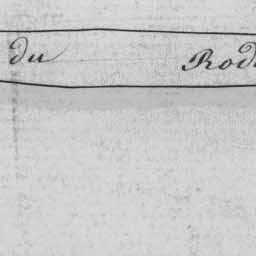 du Rod